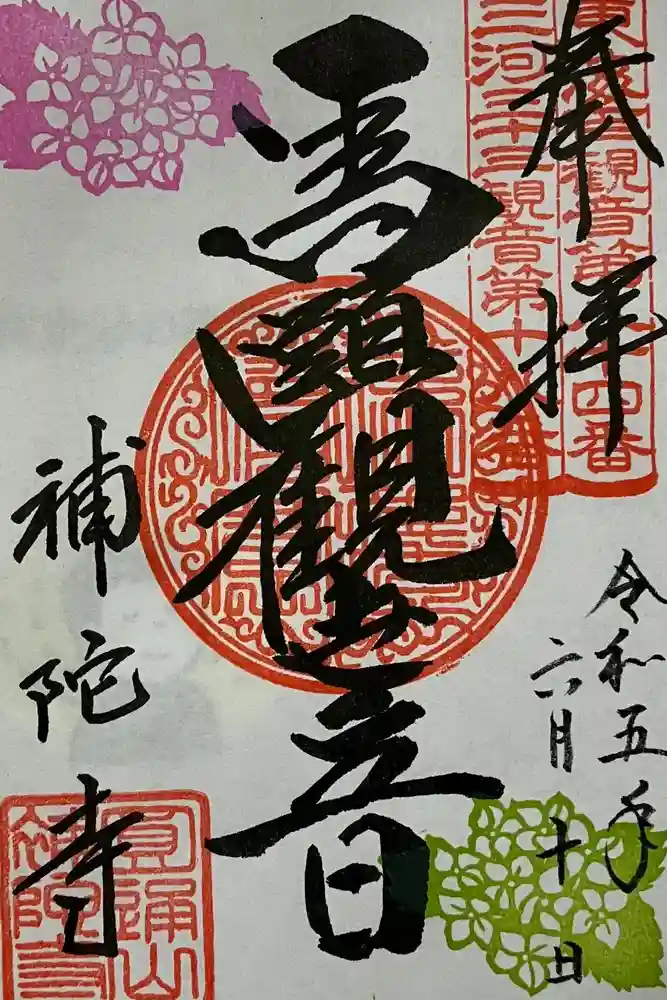 奉拝
三河三十三観音第十
観音第
四番
令和五年
六月十日
馬頭觀世音
補陀寺
圓通山
補陀寺